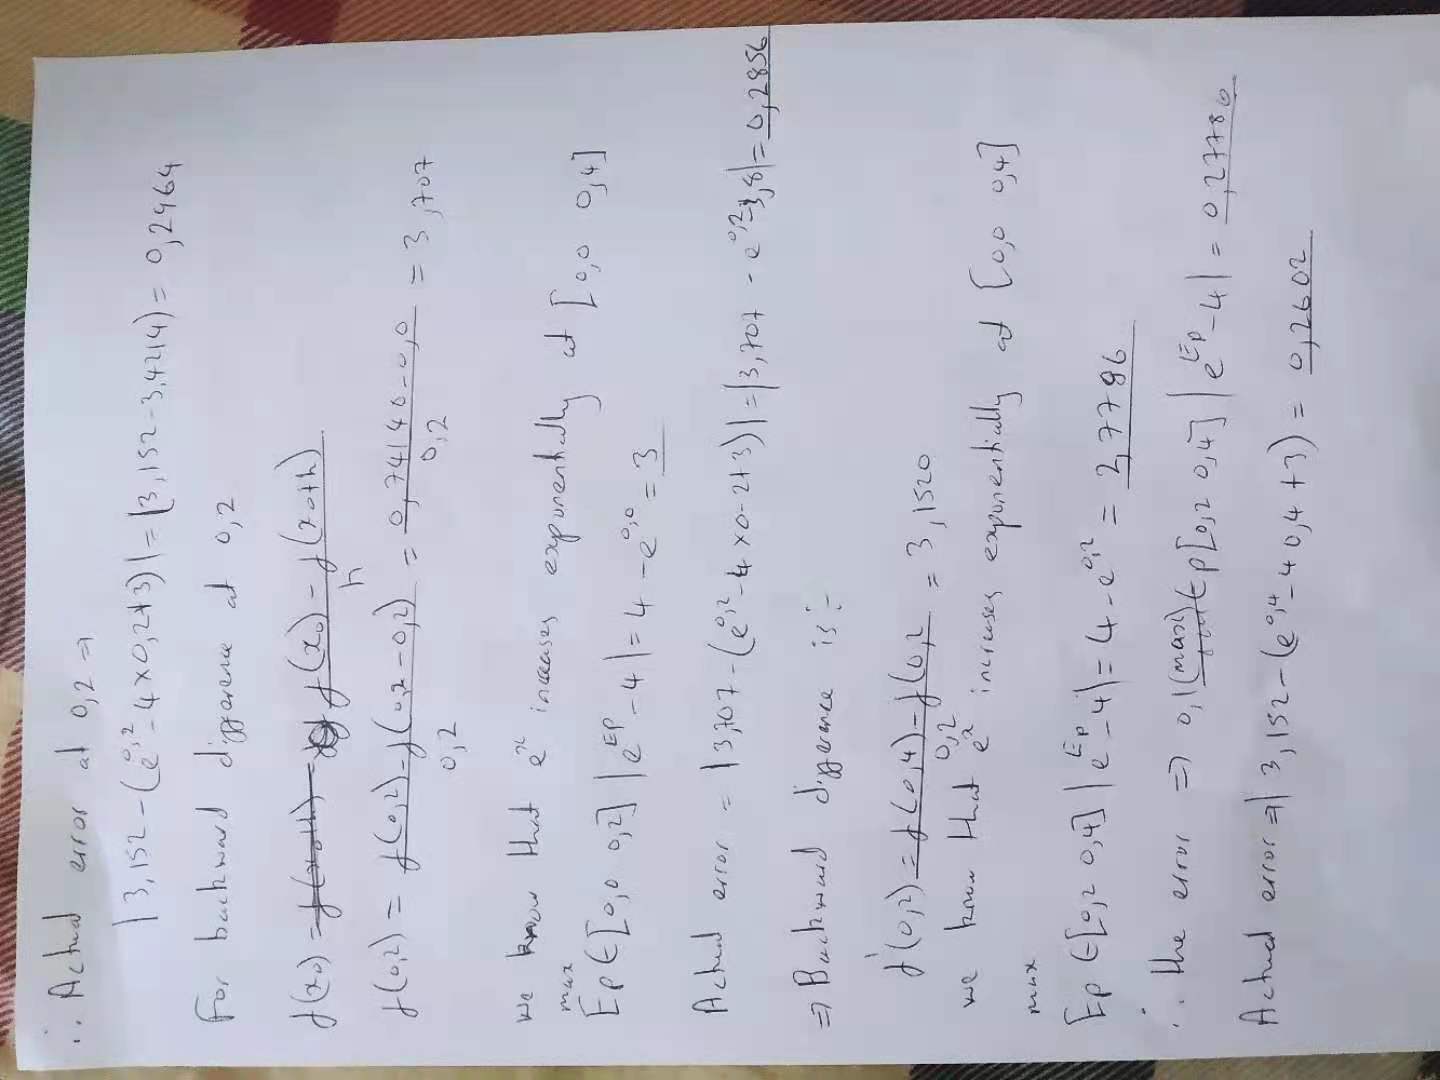 ∴ Actual error at 0,2 ⇒
|3,152 - (e^0,2 - 4×0,2+3)| = |3,152 - 3,4214) = 0,2464
For backward difference at 0,2
f(x0) = f(x0) - f(x0+h)
h
f(0,2) = f(0,2) - f(0,2 - 0,2) = 0,74140 - 0,0 = 3,707
0,2 0,2
we know that e^x increases exponentially at [0,0 0,4]
max
Ep ∈ [0,0 0,2] |e^Ep - 4| = 4 - e^0,0 = 3
Actual error = |3,707 - (e^0,2 - 4×0.2+3)| = |3,707 - e^0,2 - 3,8| = 0,2856
⇒ Backward differance is :-
f'(0,2) = f(0,4) - f(0,2 = 3,1520
0,2
we know that e^x increases exponentially at [0,0 0,4]
max
Ep ∈ [0,2 0,4] |e^Ep - 4| = 4 - e^0,2 = 2,7786
∴ the error ⇒ 0,1 (max) Ep[0,2 0,4] |e^Ep - 4| = 0,27786
Actual error ⇒ | 3,152 - (e^0,4 - 4 0,4 + 3) = 0,2602